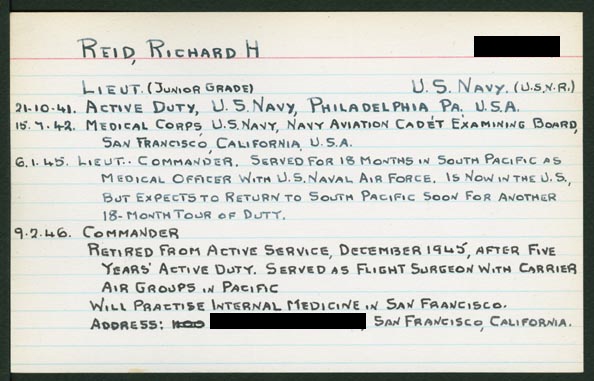 REID, RICHARD H
LIEUT. (JUNIOR GRADE) U.S. NAVY. (U.S.N.R.)
21.10.41. ACTIVE DUTY, U.S. NAVY, PHILADELPHIA PA. U.S.A.
15.7.42. MEDICAL CORPS, U.S. NAVY, NAVY AVIATION CADET EXAMINING BOARD,
SAN FRANCISCO, CALIFORNIA, U.S.A.
6.1.45. LIEUT.. COMMANDER. SERVED FOR 18 MONTHS IN SOUTH PACIFIC AS
MEDICAL OFFICER WITH U.S. NAVAL AIR FORCE. IS NOW IN THE U.S.,
BUT EXPECTS TO RETURN TO SOUTH PACIFIC SOON FOR ANOTHER
18-MONTH TOUR OF DUTY.
9.2.46. COMMANDER
RETIRED FROM ACTIVE SERVICE, DECEMBER 1945, AFTER FIVE
YEARS' ACTIVE DUTY. SERVED AS FLIGHT SURGEON WITH CARRIER
AIR GROUPS IN PACIFIC
WILL PRACTISE INTERNAL MEDICINE IN SAN FRANCISCO.
ADDRESS: , SAN FRANCISCO, CALIFORNIA.